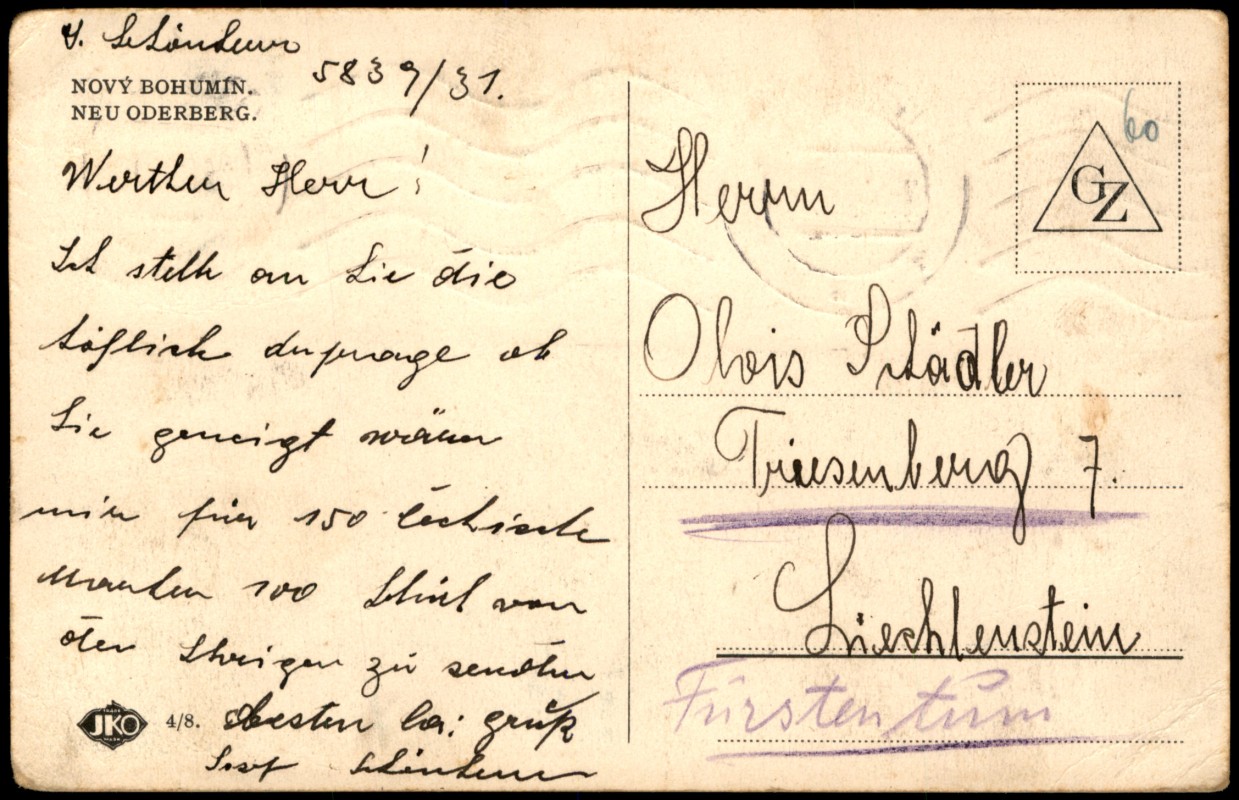 J. Schönherr
5839/31.
NOVÝ BOHUMÍN.
NEU ODERBERG.
Werthen Herr!
Ich stelle an Sie die
höfliche Anfrage ob
Sie geneigt wären
mir für 150 čechische
Marken 100 Stück von
den Ihrigen zu senden
besten gruß
Josef Schönherr
JKO
TRADE
MARK
4/8.
60
GZ
Herrn
Alois Schädler
Triesenberg 7.
Liechtenstein
Fürstentum